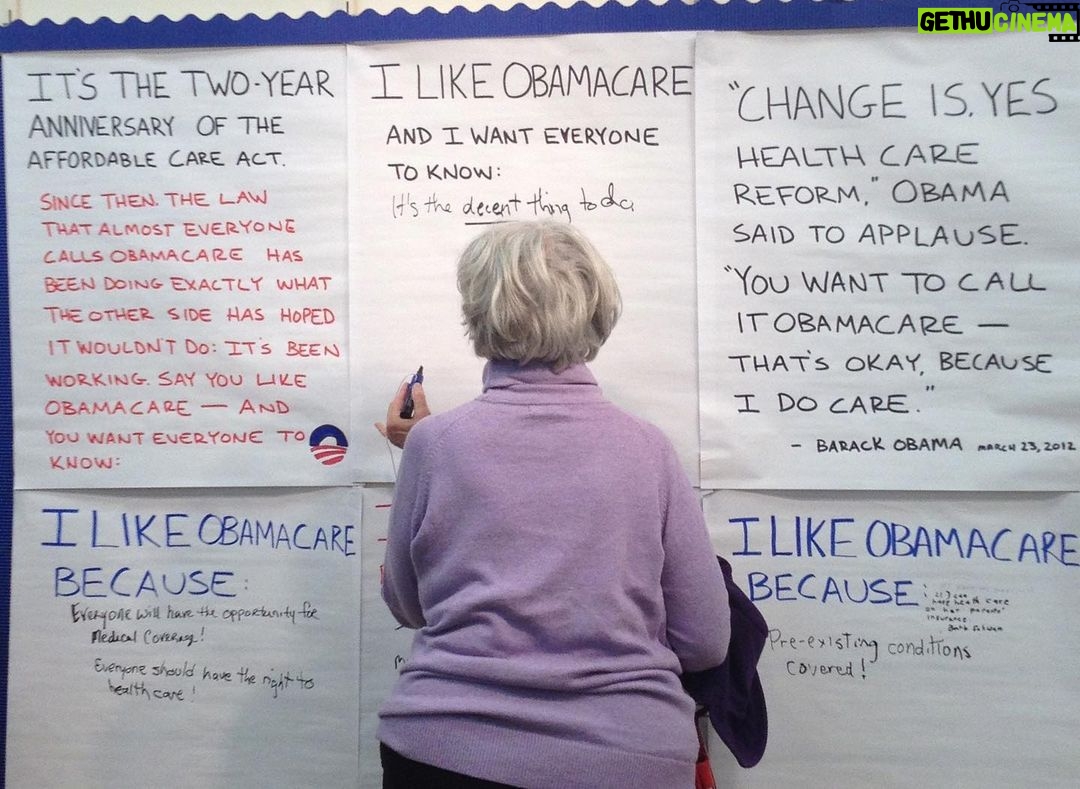 GETHUCINEMA
IT'S THE TWO-YEAR
ANNIVERSARY OF THE
AFFORDABLE CARE ACT.
SINCE THEN. THE LAW
THAT ALMOST EVERYONE
CALLS OBAMACARE HAS
BEEN DOING EXACTLY WHAT
THE OTHER SIDE HAS HOPED
IT WOULDN'T DO: IT'S BEEN
WORKING. SAY YOU LIKE
OBAMACARE — AND
YOU WANT EVERYONE TO
KNOW:
I LIKE OBAMACARE
AND I WANT EVERYONE
TO KNOW:
It's the decent thing to do
"CHANGE IS, YES
HEALTH CARE
REFORM," OBAMA
SAID TO APPLAUSE.
"YOU WANT TO CALL
IT OBAMACARE —
THAT'S OKAY, BECAUSE
I DO CARE."
- BARACK OBAMA MARCH 23, 2012
I LIKE OBAMACARE
BECAUSE:
Everyone will have the opportunity for
Medical Coverag!
Everyone should have the right to
healthcare!
I LIKE OBAMACARE
BECAUSE
have health care
on her parents'
insurance
Pre-existing conditions
covered!